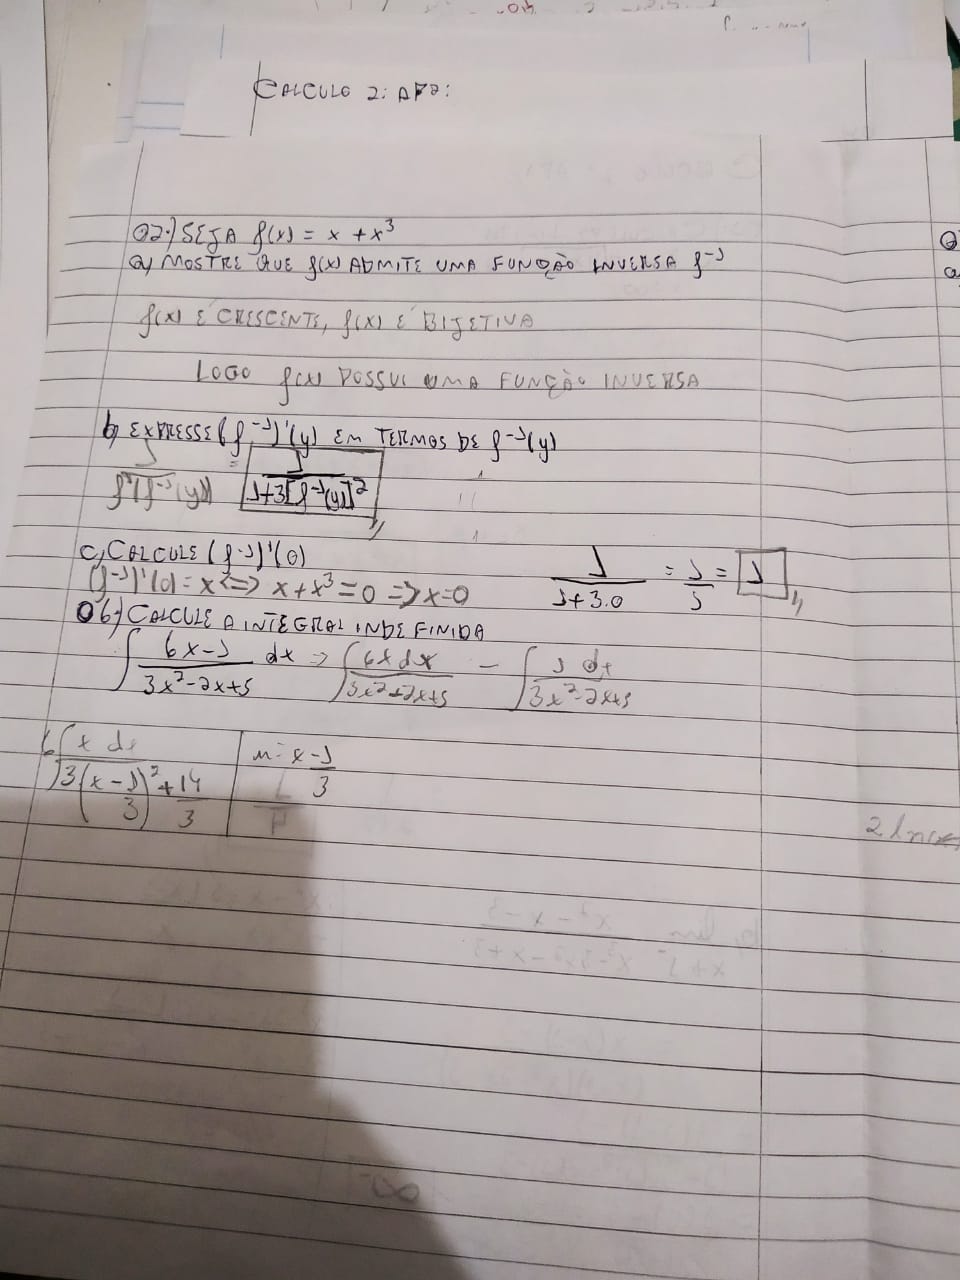 CALCULO 2: AP2:
02-) SEJA f(x) = x + x³
a) MOSTRE QUE f(x) ADMITE UMA FUNÇÃO INVERSA f⁻¹
f(x) É CRESCENTE, f(x) É BIJETIVA
LOGO f(x) POSSUI UMA FUNÇÃO INVERSA
b) EXPRESSE (f⁻¹)'(y) EM TERMOS DE f⁻¹(y)
1/f'(f⁻¹(y)) = 1/1+3[f⁻¹(y)]²
c) CALCULE (f⁻¹)'(0)
(f⁻¹)'(0) = x <=> x + x³ = 0 => x = 0 1/1+3.0 = 1/1 = 1
06-) CALCULE A INTEGRAL INDEFINIDA
∫ 6x-1/3x²-2x+5 dx => ∫ 6x dx/3x²-2x+5 - ∫ 1 dx/3x²-2x+5
6∫ x dx/3(x-1/3)²+14/3 u = x-1/3
2 ln